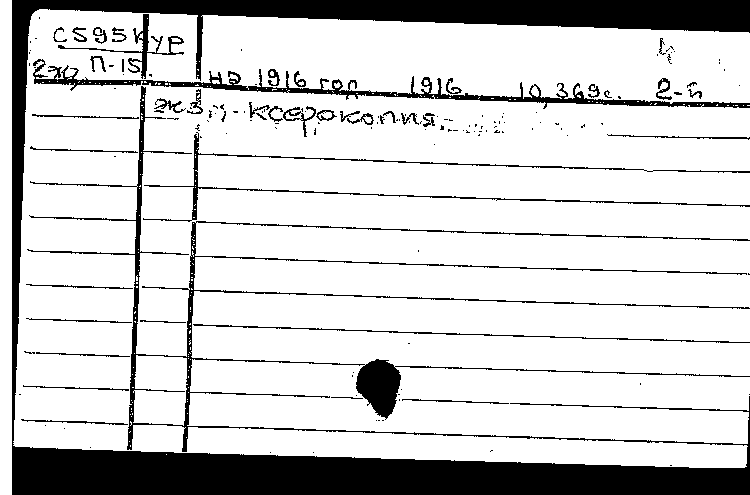 С595Кур
П-15
2жз. на 1916 год 1916. 10,369с. 2-й
экз.- ксерокопия.